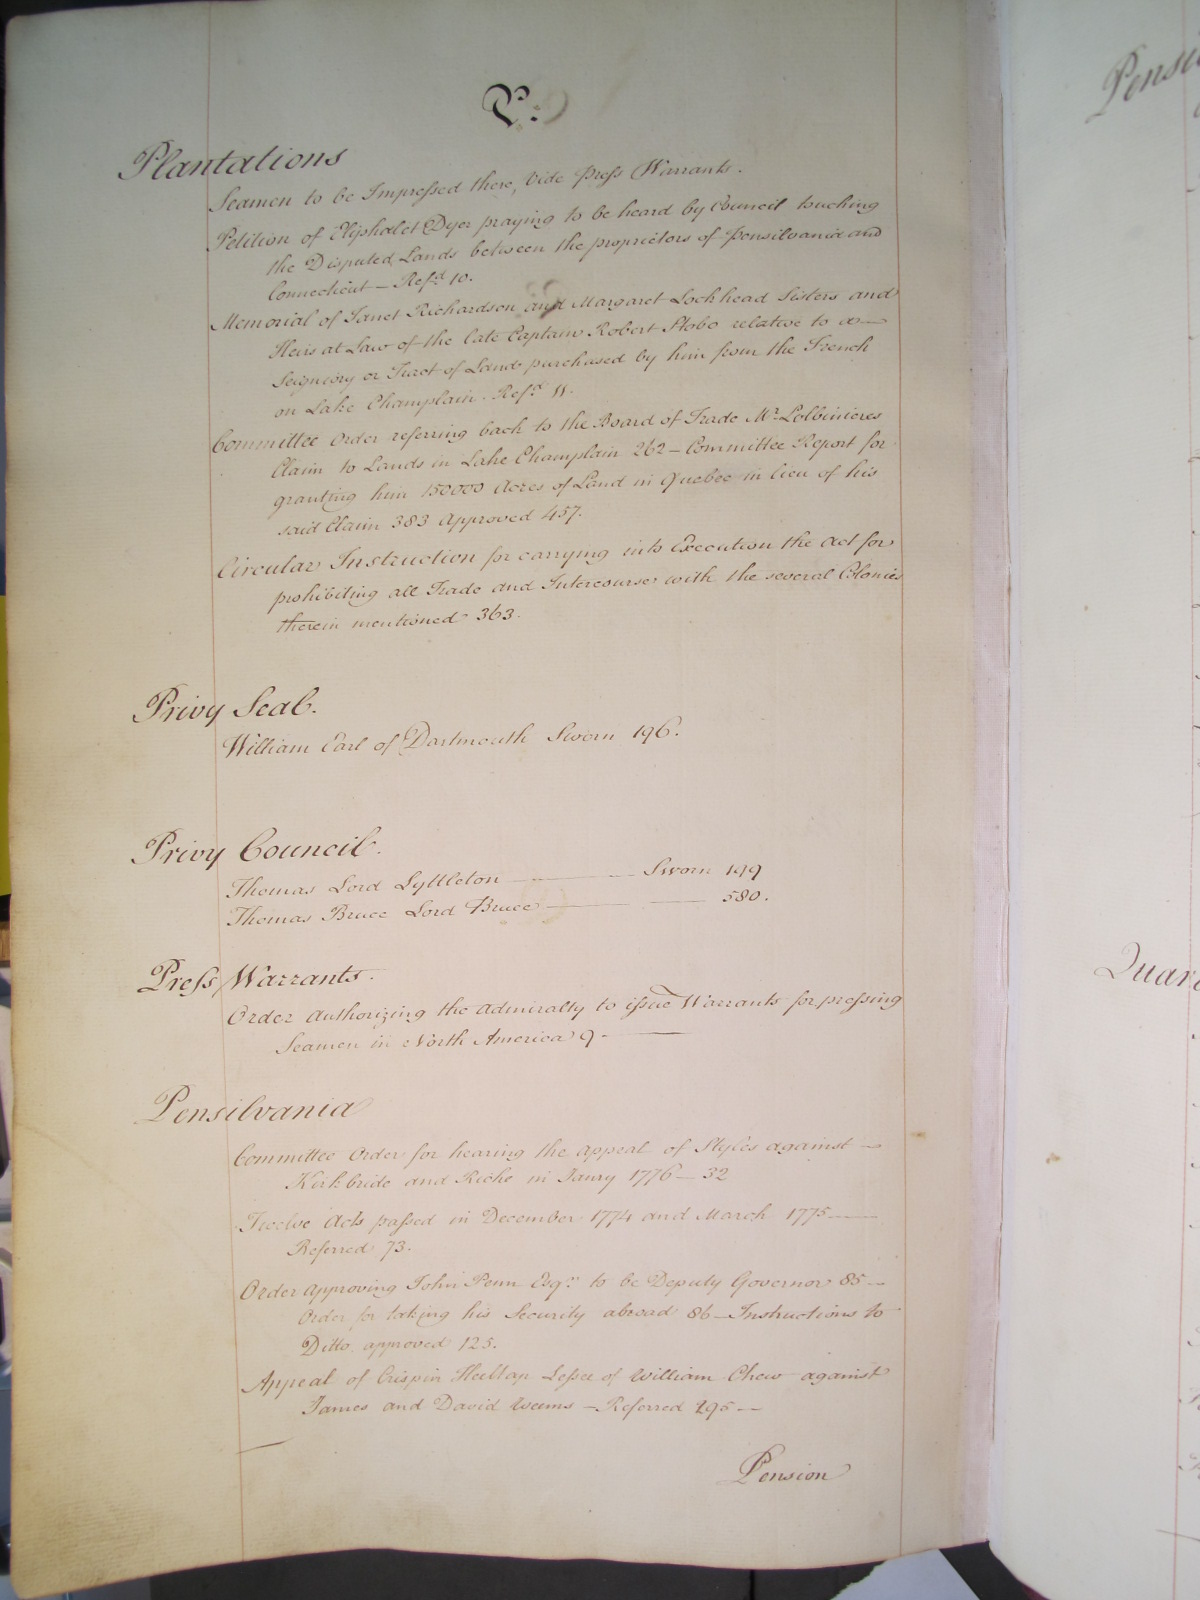 P.
Plantations
Seamen to be Impressed there, Vide Press Warrants.
Petition of Eliphalet Dyer praying to be heard by Council touching
the Disputed Lands between the proprietors of Pensilvania and
Connecticut — Refd 10.
Memorial of Janet Richardson and Margaret Lockhead Sisters and
Heirs at Law of the late Captain Robert Stobo relative to a
Seigneory or Tract of Land purchased by him from the French
on Lake Champlain. Refd 11.
Committee Order referring back to the Board of Trade Mr Lolbinieres
Claim to Lands in Lake Champlain 262 — Committee Report for
granting him 150000 Acres of Land in Quebec in lieu of his
said Claim 383 Approved 457.
Circular Instruction for carrying into Execution the Act for
prohibiting all Trade and Intercourse with the several Colonies
therein mentioned 363.
Privy Seal.
William Earl of Dartmouth Sworn 196.
Privy Council.
Thomas Lord Lyttleton — Sworn 199
Thomas Bruce Lord Bruce — 580.
Press Warrants.
Order Authorizing the Admiralty to issue Warrants for pressing
Seamen in North America 9 —
Pensilvania
Committee Order for hearing the Appeal of Styles against
Kirkbride and Riche in Janry 1776 — 32
Twelve Acts passed in December 1774 and March 1775 —
Referred 73.
Order Approving John Penn Esqr. to be Deputy Governor 85 —
Order for taking his Security abroad 86 — Instructions to
Ditto approved 125.
Appeal of Crispin Lessee of William Chew against
James and David Weems — Referred 295 —
Pension
Pensi
Quar